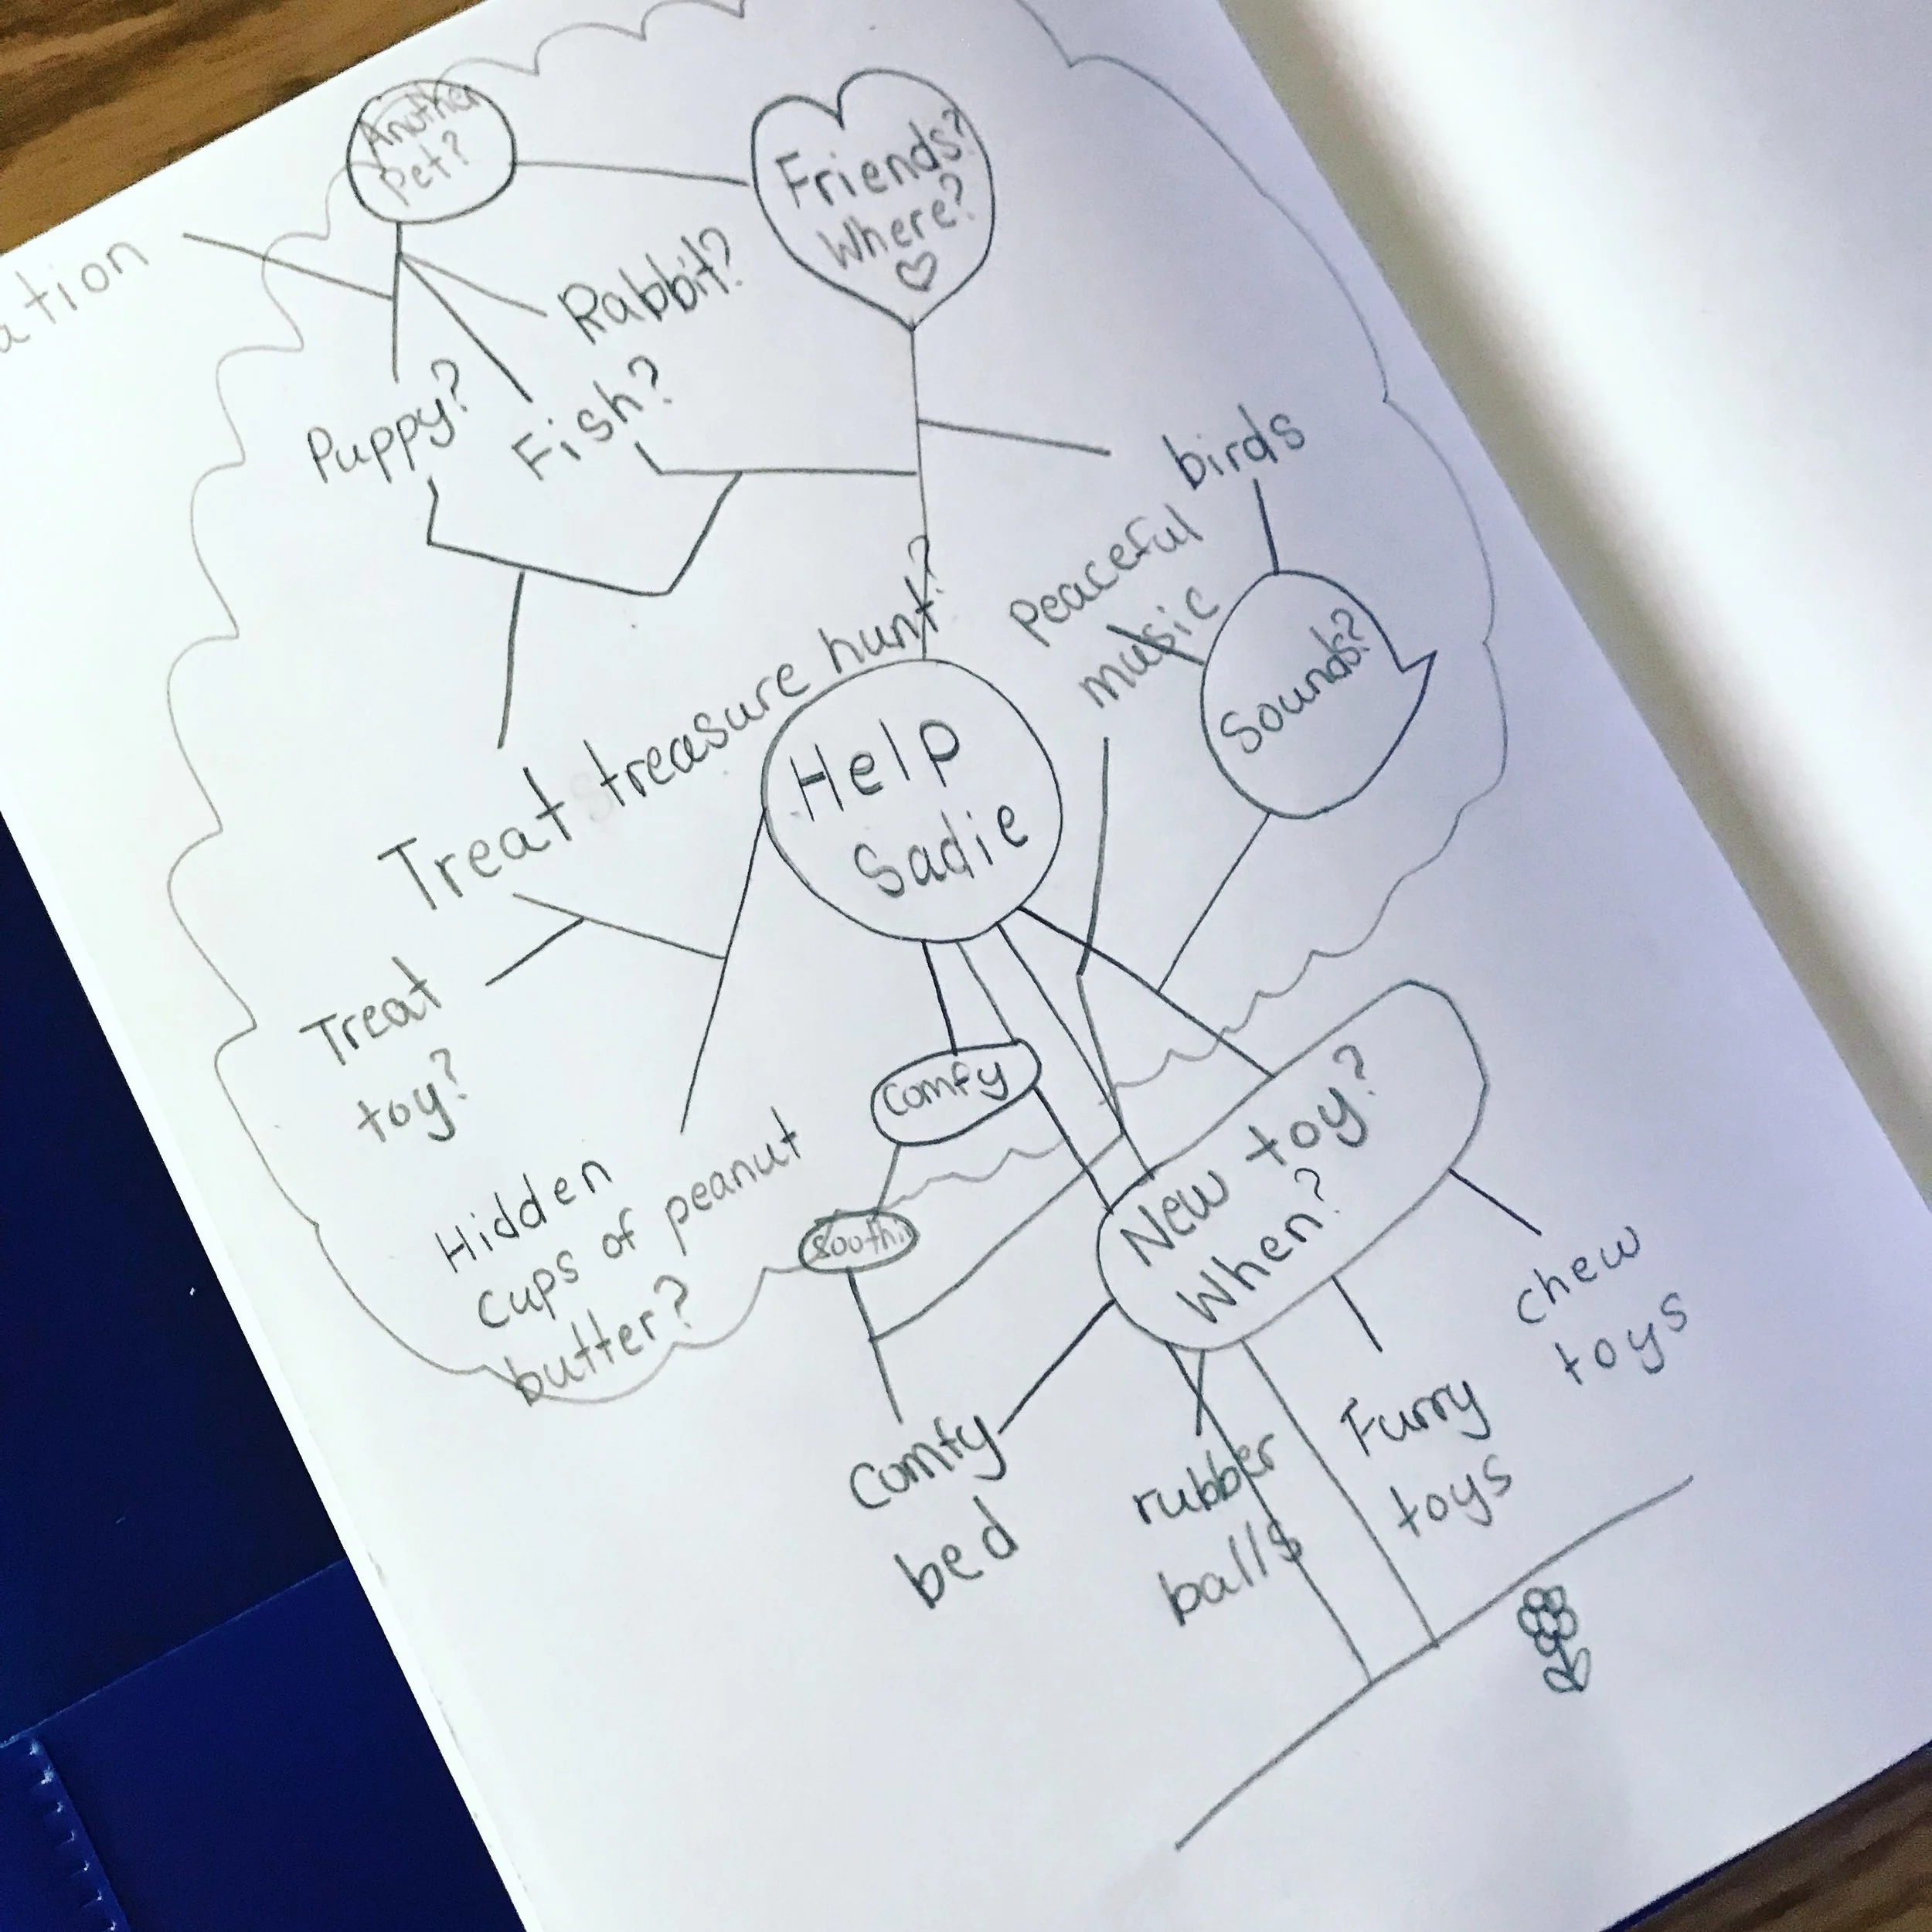 Another
Pet?
Friends?
Where?
ation
Rabbit?
Puppy?
Fish?
birds
Peaceful
music
Sounds?
Treat treasure hunt?
Help
Sadie
Treat
toy?
Comfy
Hidden
cups of peanut
butter?
New toy?
When?
chew
toys
Comfy
bed
rubber
balls
Furry
toys